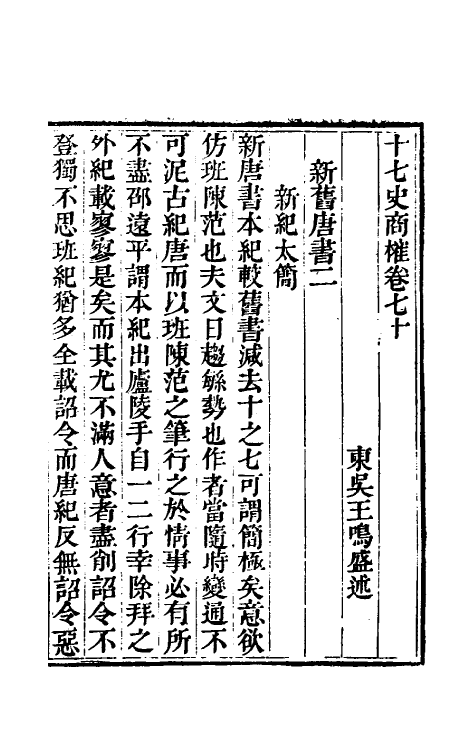 十七史商榷卷七十
東吳王鳴盛述
新舊唐書二
新紀太簡
新唐書本紀較舊書減去十之七可謂簡極矣意欲
仿班陳范也夫文日趨繁勢也作者當隨時變通不
可泥古紀唐而以班陳范之筆行之於情事必有所
不盡邵遠平謂本紀出廬陵手自一二行幸除拜之
外紀載寥寥是矣而其尤不滿人意者盡削詔令不
登獨不思班紀猶多全載詔令而唐紀反無詔令惡